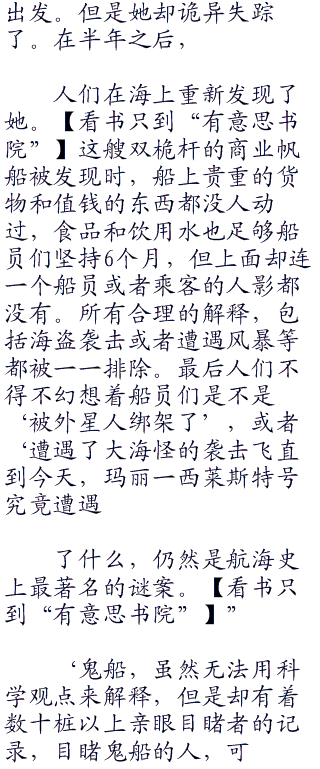 出发。但是她却诡异失踪
了。在半年之后，
人们在海上重新发现了
她。【看书只到“有意思书
院”】这艘双桅杆的商业帆
船被发现时，船上贵重的货
物和值钱的东西都没人动
过，食品和饮用水也足够船
员们坚持6个月，但上面却连
一个船员或者乘客的人影都
没有。所有合理的解释，包
括海盗袭击或者遭遇风暴等
都被一一排除。最后人们不
得不幻想着船员们是不是
‘被外星人绑架了’，或者
‘遭遇了大海怪的袭击飞直
到今天，玛丽一西莱斯特号
究竟遭遇
了什么，仍然是航海史
上最著名的谜案。【看书只
到“有意思书院”】”
‘鬼船，虽然无法用科
学观点来解释，但是却有着
数十桩以上亲眼目睹者的记
录，目睹鬼船的人，可